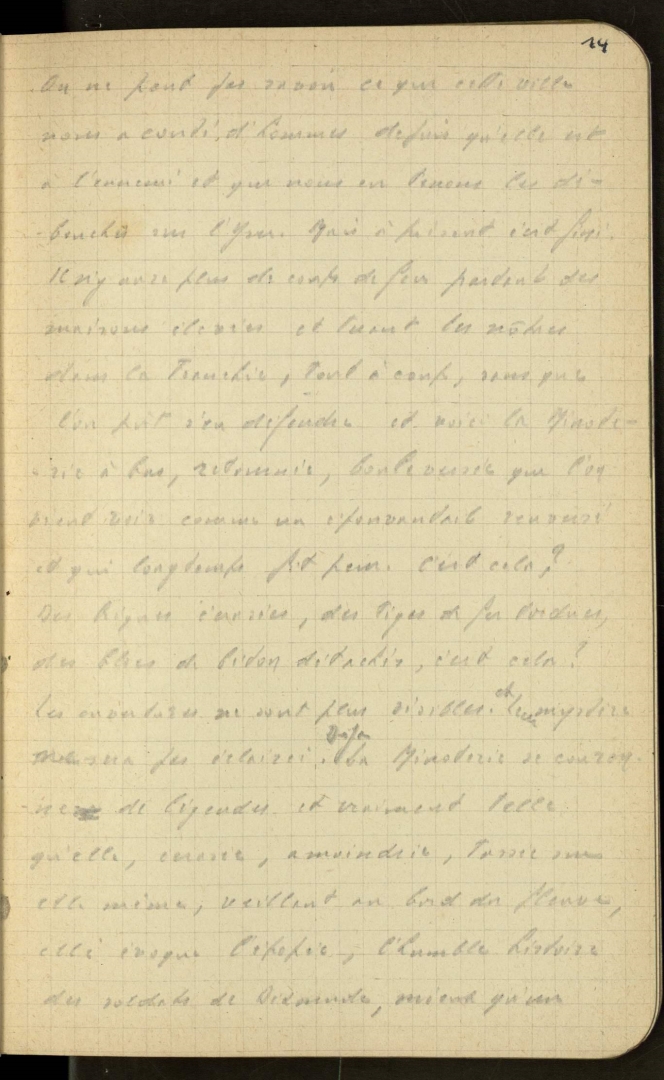 14
On ne peut pas savoir ce que cette ville
nous a coûté, d'hommes depuis qu'elle est
à l'ennemi et que nous en tenons les dé-
-bouchés sur l'Yser. Mais à présent c'est fini.
Il n'y aura plus de coups de feu partant des
maisons élevées et tuant les nôtres
dans la Tranchée, tout à coup, sans que
l'on pût s'en défendre et voici la Minote-
-rie à bas, retournée, bouleversée que l'on
vient voir comme un épouvantail renversé
et qui longtemps fit peur. C'est cela ?
Des briques écrasées, des tiges de fer tordues,
des blocs de béton détachés, c'est cela ?
Les ouvertures ne sont plus visibles. et leur mystère
sera pas éclairci. Déjà La Minoterie se couron-
-ne de légendes et vraiment telle
qu'elle, écrasée, amoindrie, tassée sur
elle même, veillant au bord du fleuve,
elle évoque l'épopée, l'humble histoire
des soldats de Dixmude, mieux qu'un